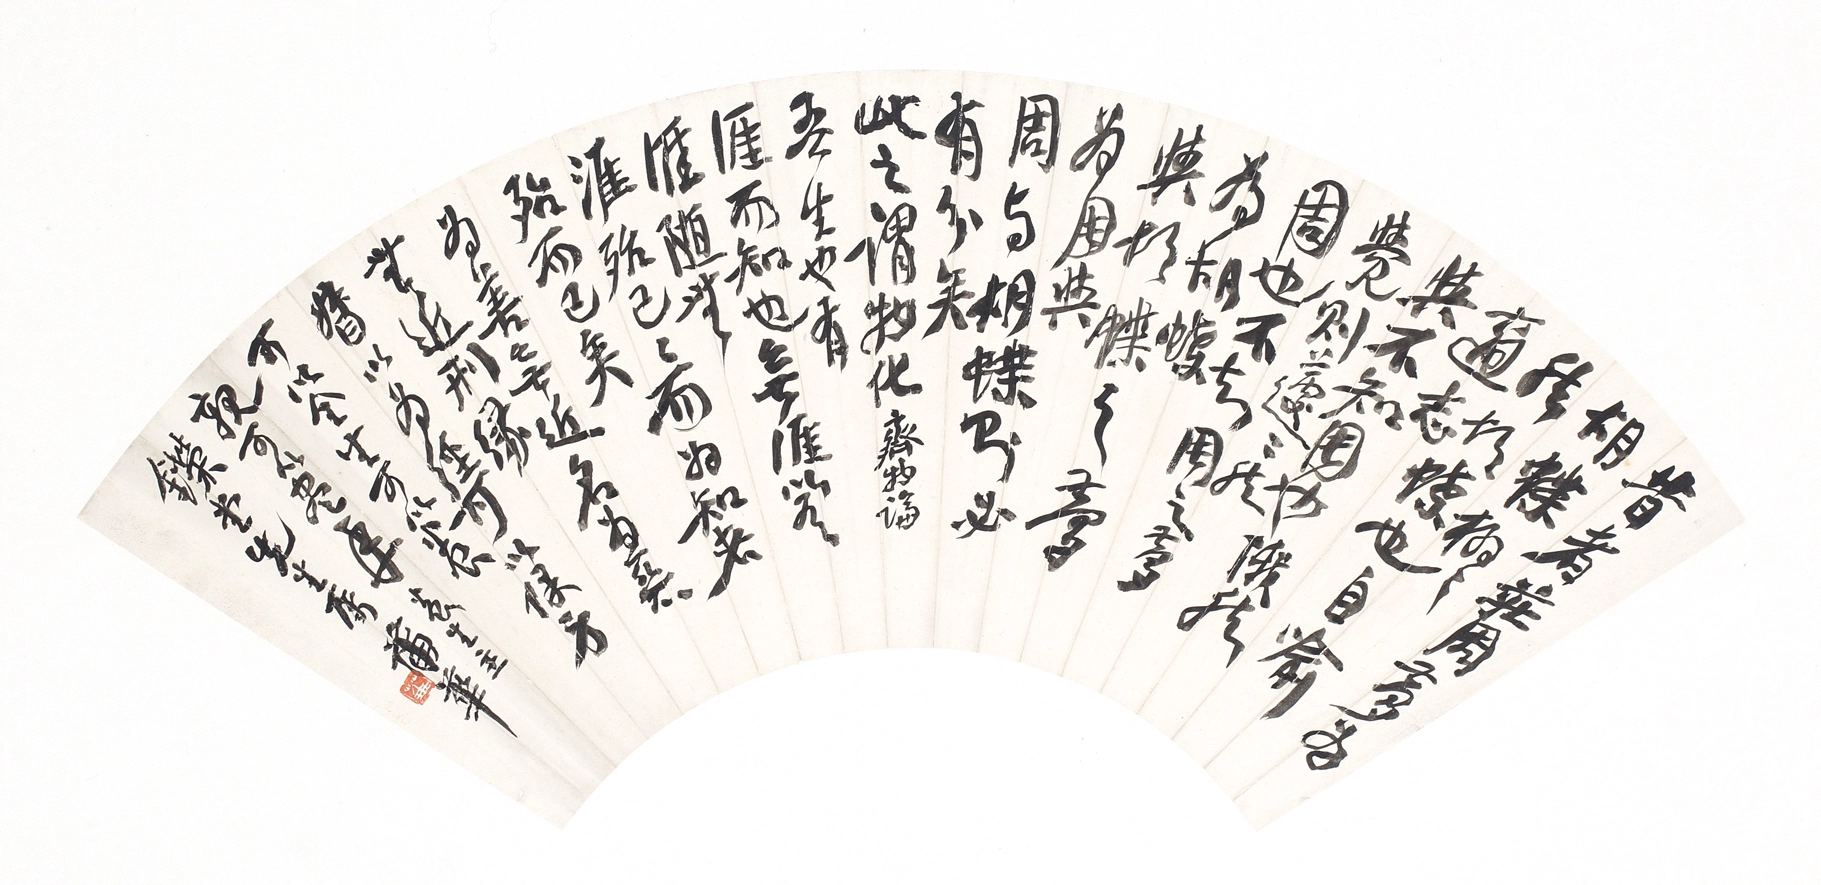 昔者莊周夢為
胡蝶栩々
然胡蝶也自喻
適志
與不知周也俄然
覺則蘧々然
周也不知周之夢
為胡蝶
與胡蝶之夢
為周與
周与胡蝶則必
有分矣
此之謂物化 齊物論
吾生也有
涯而知也無涯以有
涯隨無
涯殆已々而為知者
殆而已矣
為善無近名為惡
無近刑緣
督以為經可以保身
可以全生可以養
親可以盡年 養生主
先生屬 蒲華